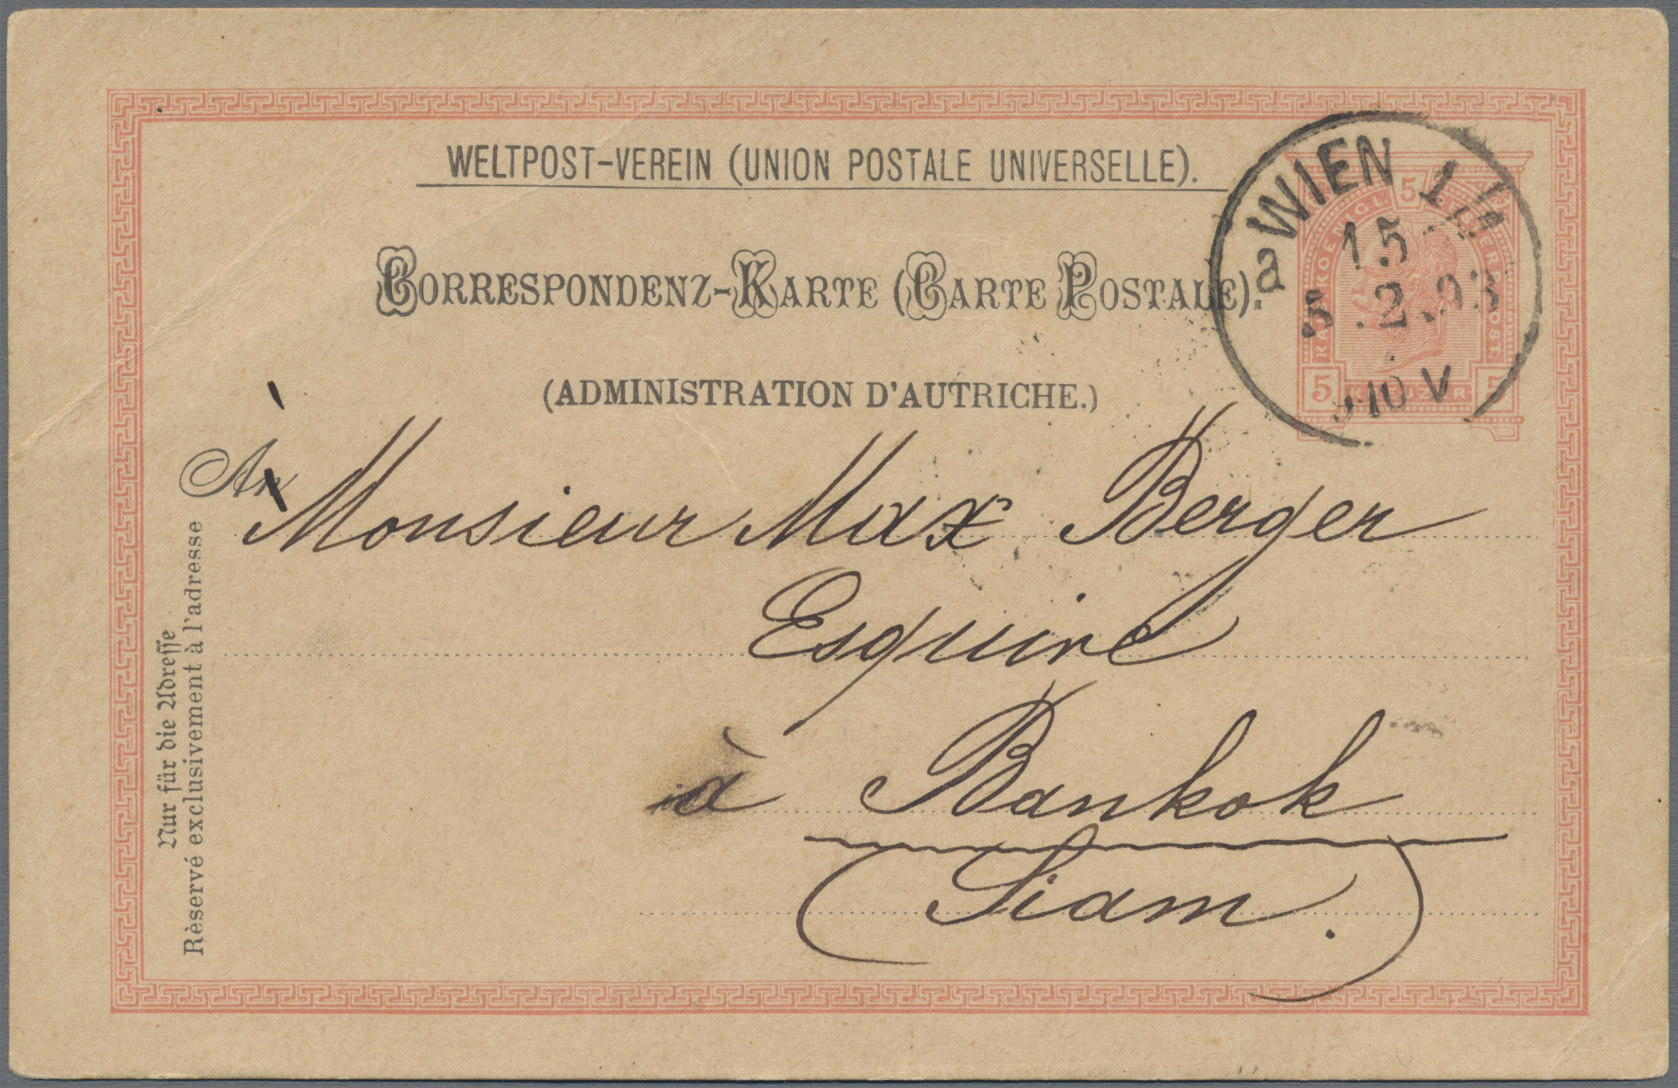 WELTPOST-VEREIN (UNION POSTALE UNIVERSELLE).
CORRESPONDENZ-KARTE (CARTE POSTALE).
(ADMINISTRATION D'AUTRICHE.)
WIEN 1
a
15
5.2.93
10 V
5
5
5
An
à Monsieur Max Berger
Esquire
à Bankok
(Siam.)
Nur für die Adresse
Rèservé exclusivement à l'adresse